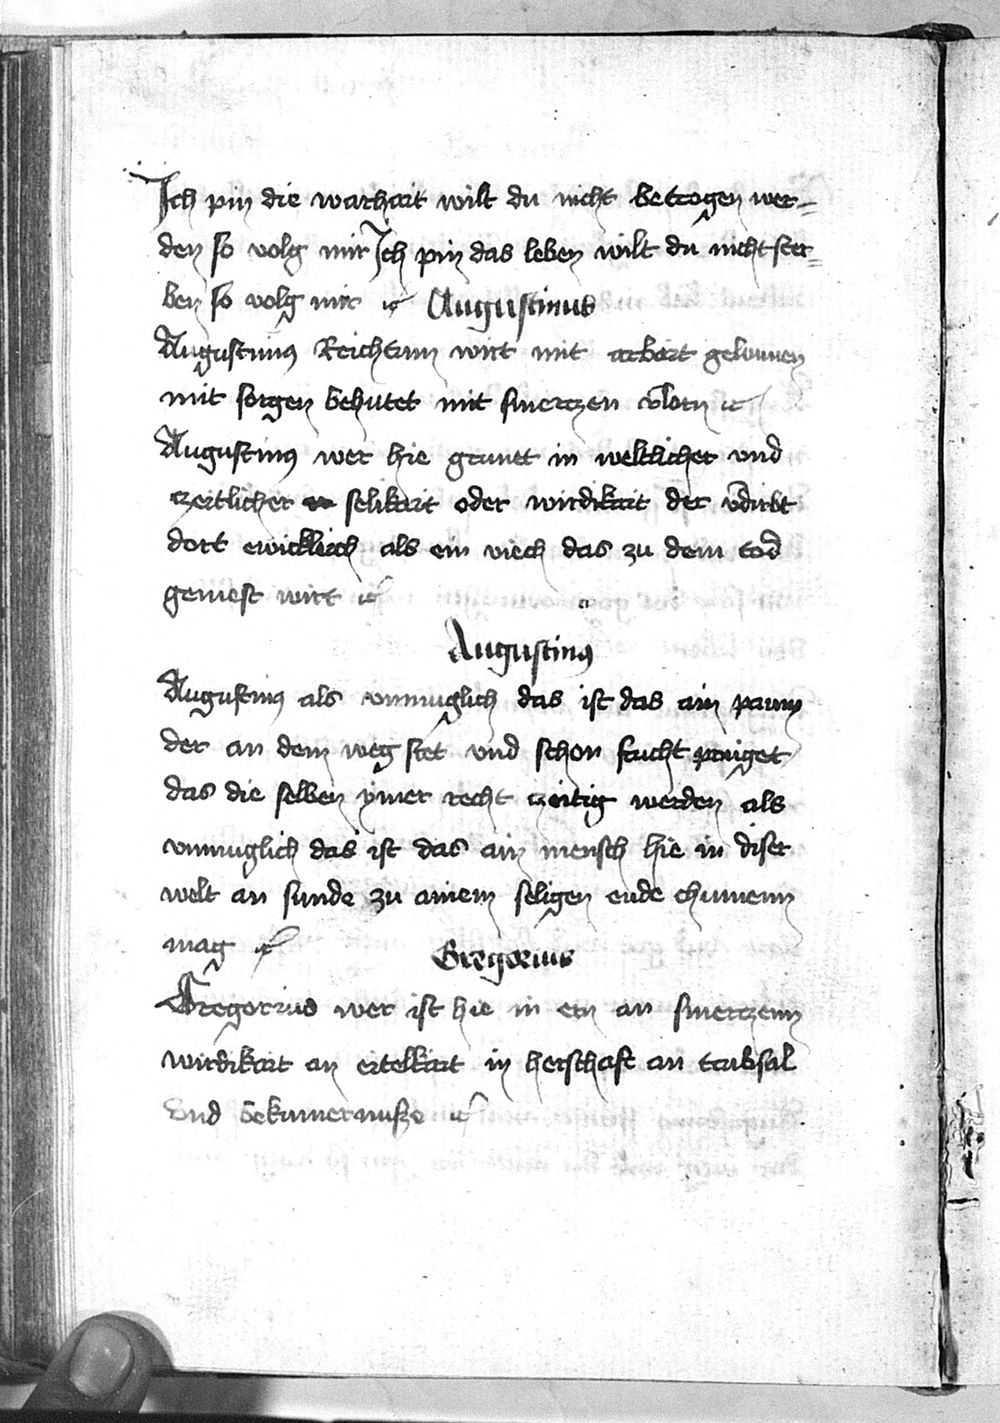 Ich pin die warhait wilt du nicht betrogen wer-
den so volg mir Ich pin das leben wilt du nicht ster-
ben so volg mir ꝛc Augustinus
Augustinus Reichtum wirt mit arbait gewunnen
mit sorgen behutet mit smerczen v̄lorn ꝛc
Augustinus wer hie grunet in weltlicher vnd
czeitlicher selikait oder wirdikait der v̄dirbt
dort ewicklich als ein viech das zu dem tod
gemest wirt ꝛc
Augustinus
Augustinus als vnmuglich das ist das ain paum
der an dem weg stet vnd schon frucht pringet
das die selben ymer recht czeitig werden als
vnmuglich das ist das ain mensch hie in diser
welt an sunde zu ainem seligen ende chumenn
mag ꝛc Gregorius
Gregorius wer ist hie in ern an smerczenn
wirdikait an eitelkait in herschaft an trubsal
vnd bekumernusze ꝛc